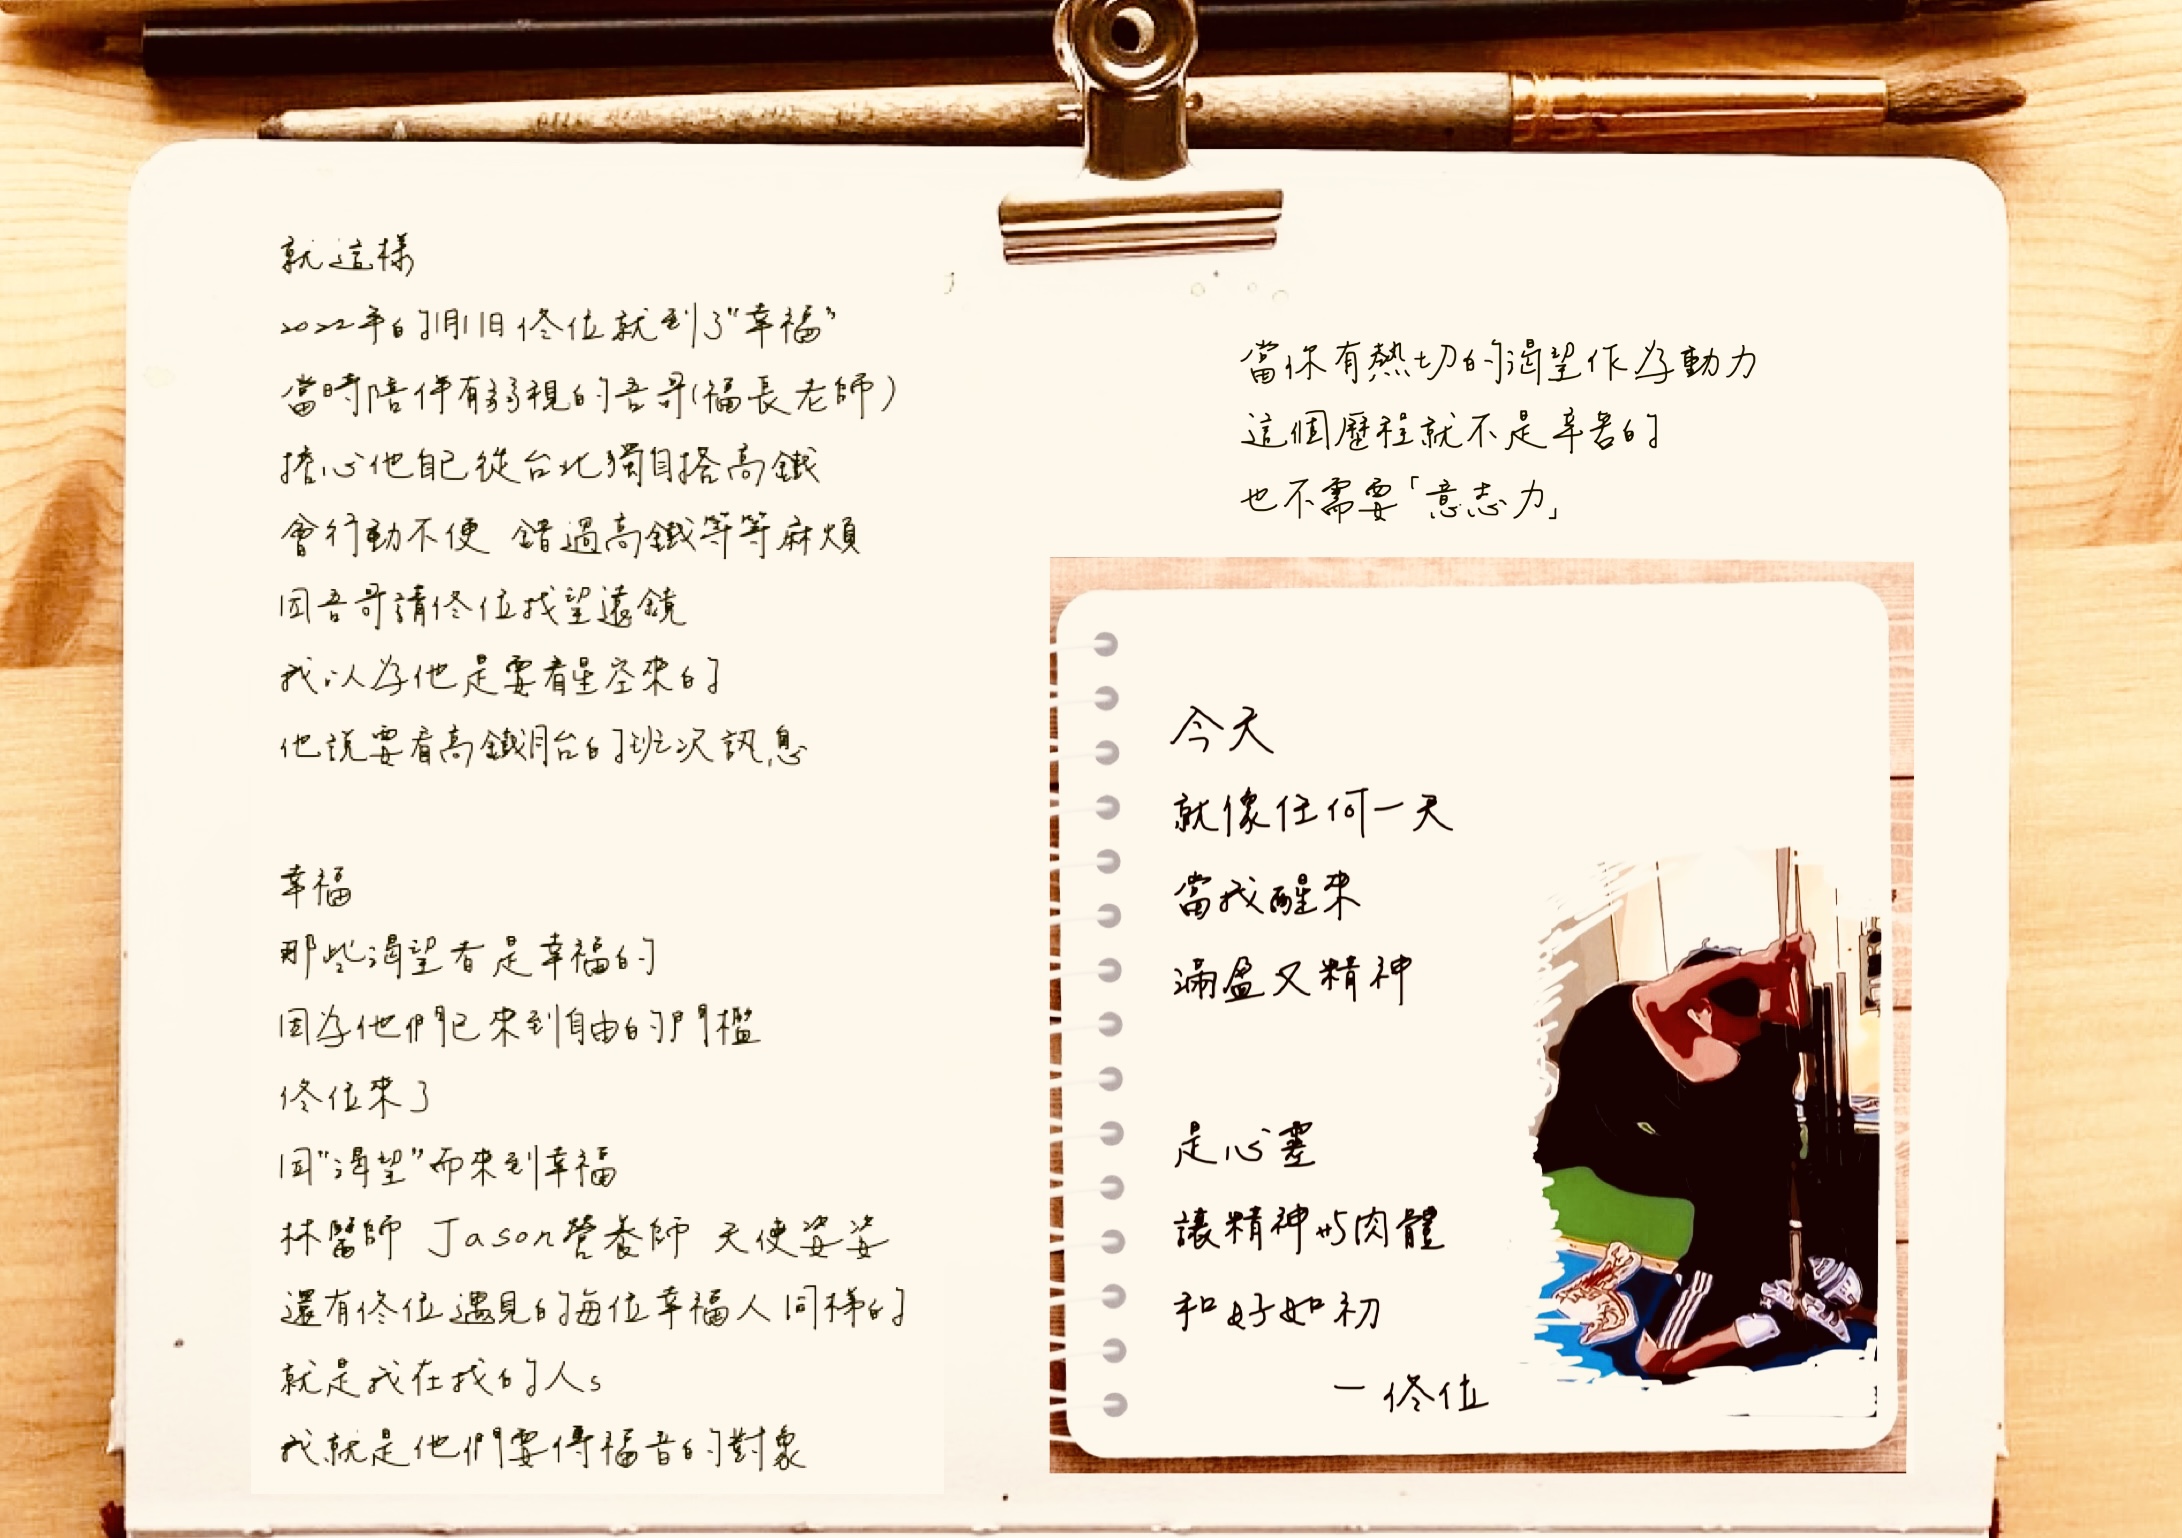 就這樣
2022年的1月11日佟位就到了“幸福”
當時陪伴有弱視的吾哥(福長老師)
擔心他自己從台北獨自搭高鐵
會行動不便 錯過高鐵等等麻煩
因吾哥請佟位找望遠鏡
我以為他是要看星空來的
他說要看高鐵月台的班次訊息
幸福
那些渴望者是幸福的
因為他們已來到自由的門檻
佟位來了
因“渴望”而來到幸福
林醫師 Jason營養師 天使姿姿
還有佟位遇見的每位幸福人同樣的
就是我在找的人s
我就是他們要傳福音的對象
當你有熱切的渴望作為動力
這個歷程就不是辛苦的
也不需要「意志力」
今天
就像任何一天
當我醒來
滿盈又精神
是心靈
讓精神與肉體
和好如初
一佟位